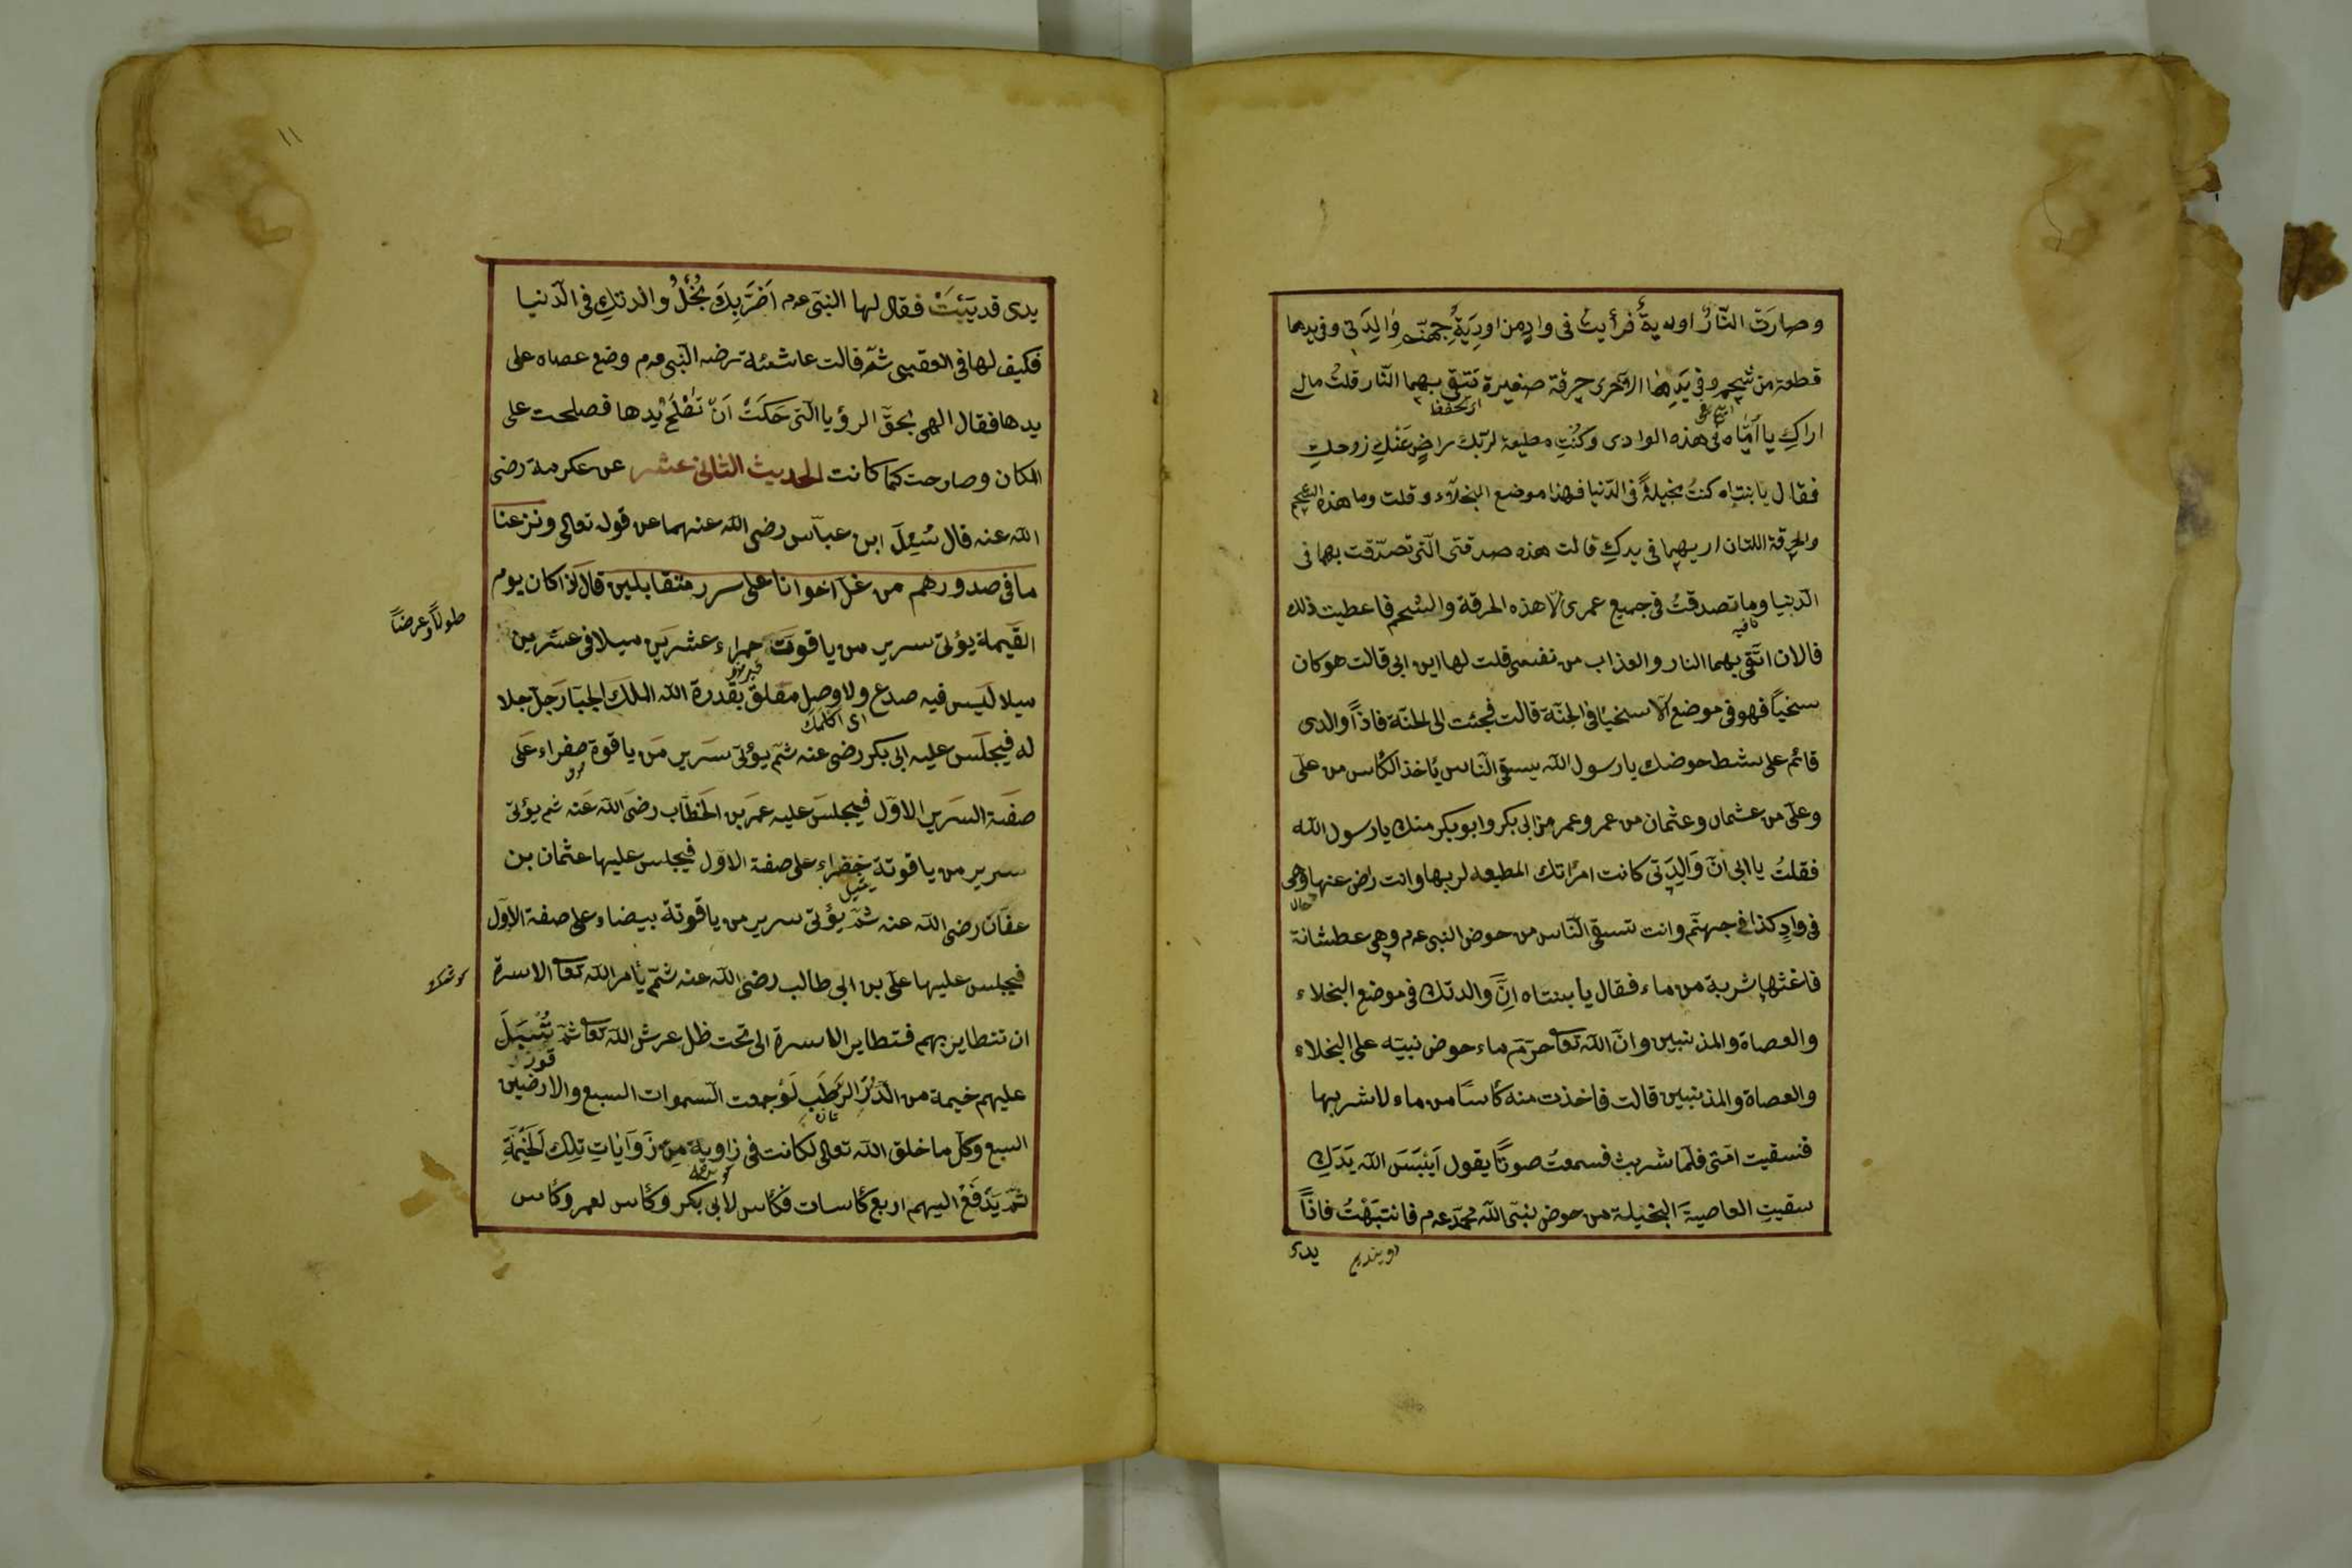 وصارَت النّارُ اودية فرأيت فى وادٍ من اوديَةِ جهنّم والِدَتى وفى يدها
قطعة من شحم وفى يَدِهٰا الاخرى خرقة صغيرة تتقى بهما النّار قلتُ مالى
اى تحفظ
اراكِ يا أمّاه فى هذه الوادى وكُنْتِ مطيعة لربّك راضٍ عَنْكِ زوجكِ
فقال يا بنتاه كنتُ بخيلةً فى الدّنيا فهذا موضع البخلاء وقلت وما هذه الشحم
والخرقة اللتان اريهما فى يدكِ قالت هذه صدقتى الّتى تصدّقت بهما فى
الدّنيا وما تصدقتُ فى جميع عمرى الّا هذه الخرقة والشحم فاعطيت ذلك
فالان اتّقى بهما النار والعذاب من نفسى قلت لها اين ابى قالت هو كان
سخيّاً فهو فى موضع الاسخيّا فى الجنّة قالت فجئت الى الجنّة فاذاً والدى
قائم على شط حوضك يا رسول الله يسقى النّاس يأخذ الكأس من على
وعلى من عثمان وعثمان من عمر وعمر من ابى بكر وابو بكر منك يا رسول الله
فقلتُ يا ابى انّ وَالِدَتى كانت امرأتك المطيعه لربها وانت راض عنها وهى
فى وادٍ كذا فى جهنّم وانت تسقى النّاس من حوض النبى عم وهى عطشانة
فاغثها شربة من ماء فقال يا بنتاه انَّ والدتك فى موضع البخلاء
والعصاة والمذنبين وانّ الله تعا حرّم ماء حوض نبيّه على البخلاء
والعصاة والمذنبين قالت فاخذت منه كأسًا من ماء لاشربها
فنسقيت امّتى فلمّا شربت فسمعتُ صوتًا يقول اَيْبَسَ الله يَدَكِ
سقيتِ العاصيةَ البخيلة من حوض نبىّ الله محمّد عم فانتبَهْتُ فاذاً
يدى
١١
يدى قد يَبِسَتْ فقال لها النبىّ عم اَضَرَّبِكَ بُخْلُ والدتكِ فى الدّنيا
فكيف لها فى العقبى ثمّ قالت عائشة رضه النّبى عم وضع عصاه على
يدها فقال الهى بحقّ الرؤيا الّتى حَكَتْ اَنْ تَصْلَحَ يدها فصلحت على
المكان وصارت كما كانت الحديث الثانى عشر عن عكرمة رضى
الله عنه قال سُئِلَ ابن عبّاس رضى الله عنهما عن قوله تعالى ونزعنا
ما فى صدورهم من غلّ اخوانا على سرر متقابلين قال اذا كان يوم
القيمة يؤتى سرير من ياقوت حمراء عشرين ميلا فى عشرين
طولاً وعرضاً
ميلا ليس فيه صدع ولا وصل مغلق بقدرة الله الملك الجبّار جلّ جلا
له فيجلس عليه ابى بكر رضى عنه ثمّ يؤتى سرير من ياقوة صفراء على
صفة السرير الاوّل فيجلس عليه عمر بن الخطّاب رضى الله عنه ثم يؤتى
سرير من ياقوتة خضراء على صفة الاوّل فيجلس عليها عثمان بن
يشيل
عفان رضى الله عنه ثمّ يؤتى سرير من ياقوتة بيضاء على صفة الاوّل
فيجلس عليها على بن ابى طالب رضى الله عنه ثمّ يأمر الله تعا الاسرة
ان تتطاير بهم فتطاير الاسرة الى تحت ظل عرش الله تعا ثمّ تُسْبَلَ
عليهم خيمة من الدُّرّ الرَّطَبِ لَوْ جمعت السّموات السبع والارضين
السبع وكلّ ما خلق الله تعالى لكانت فى زاوية مِن زَوَايٰاتِ تِلك الخَيْمَةِ
ثمّ يَدْفَعْ اليهم اربع كأسات فكأس لابى بكر وكأس لعمر وكأس